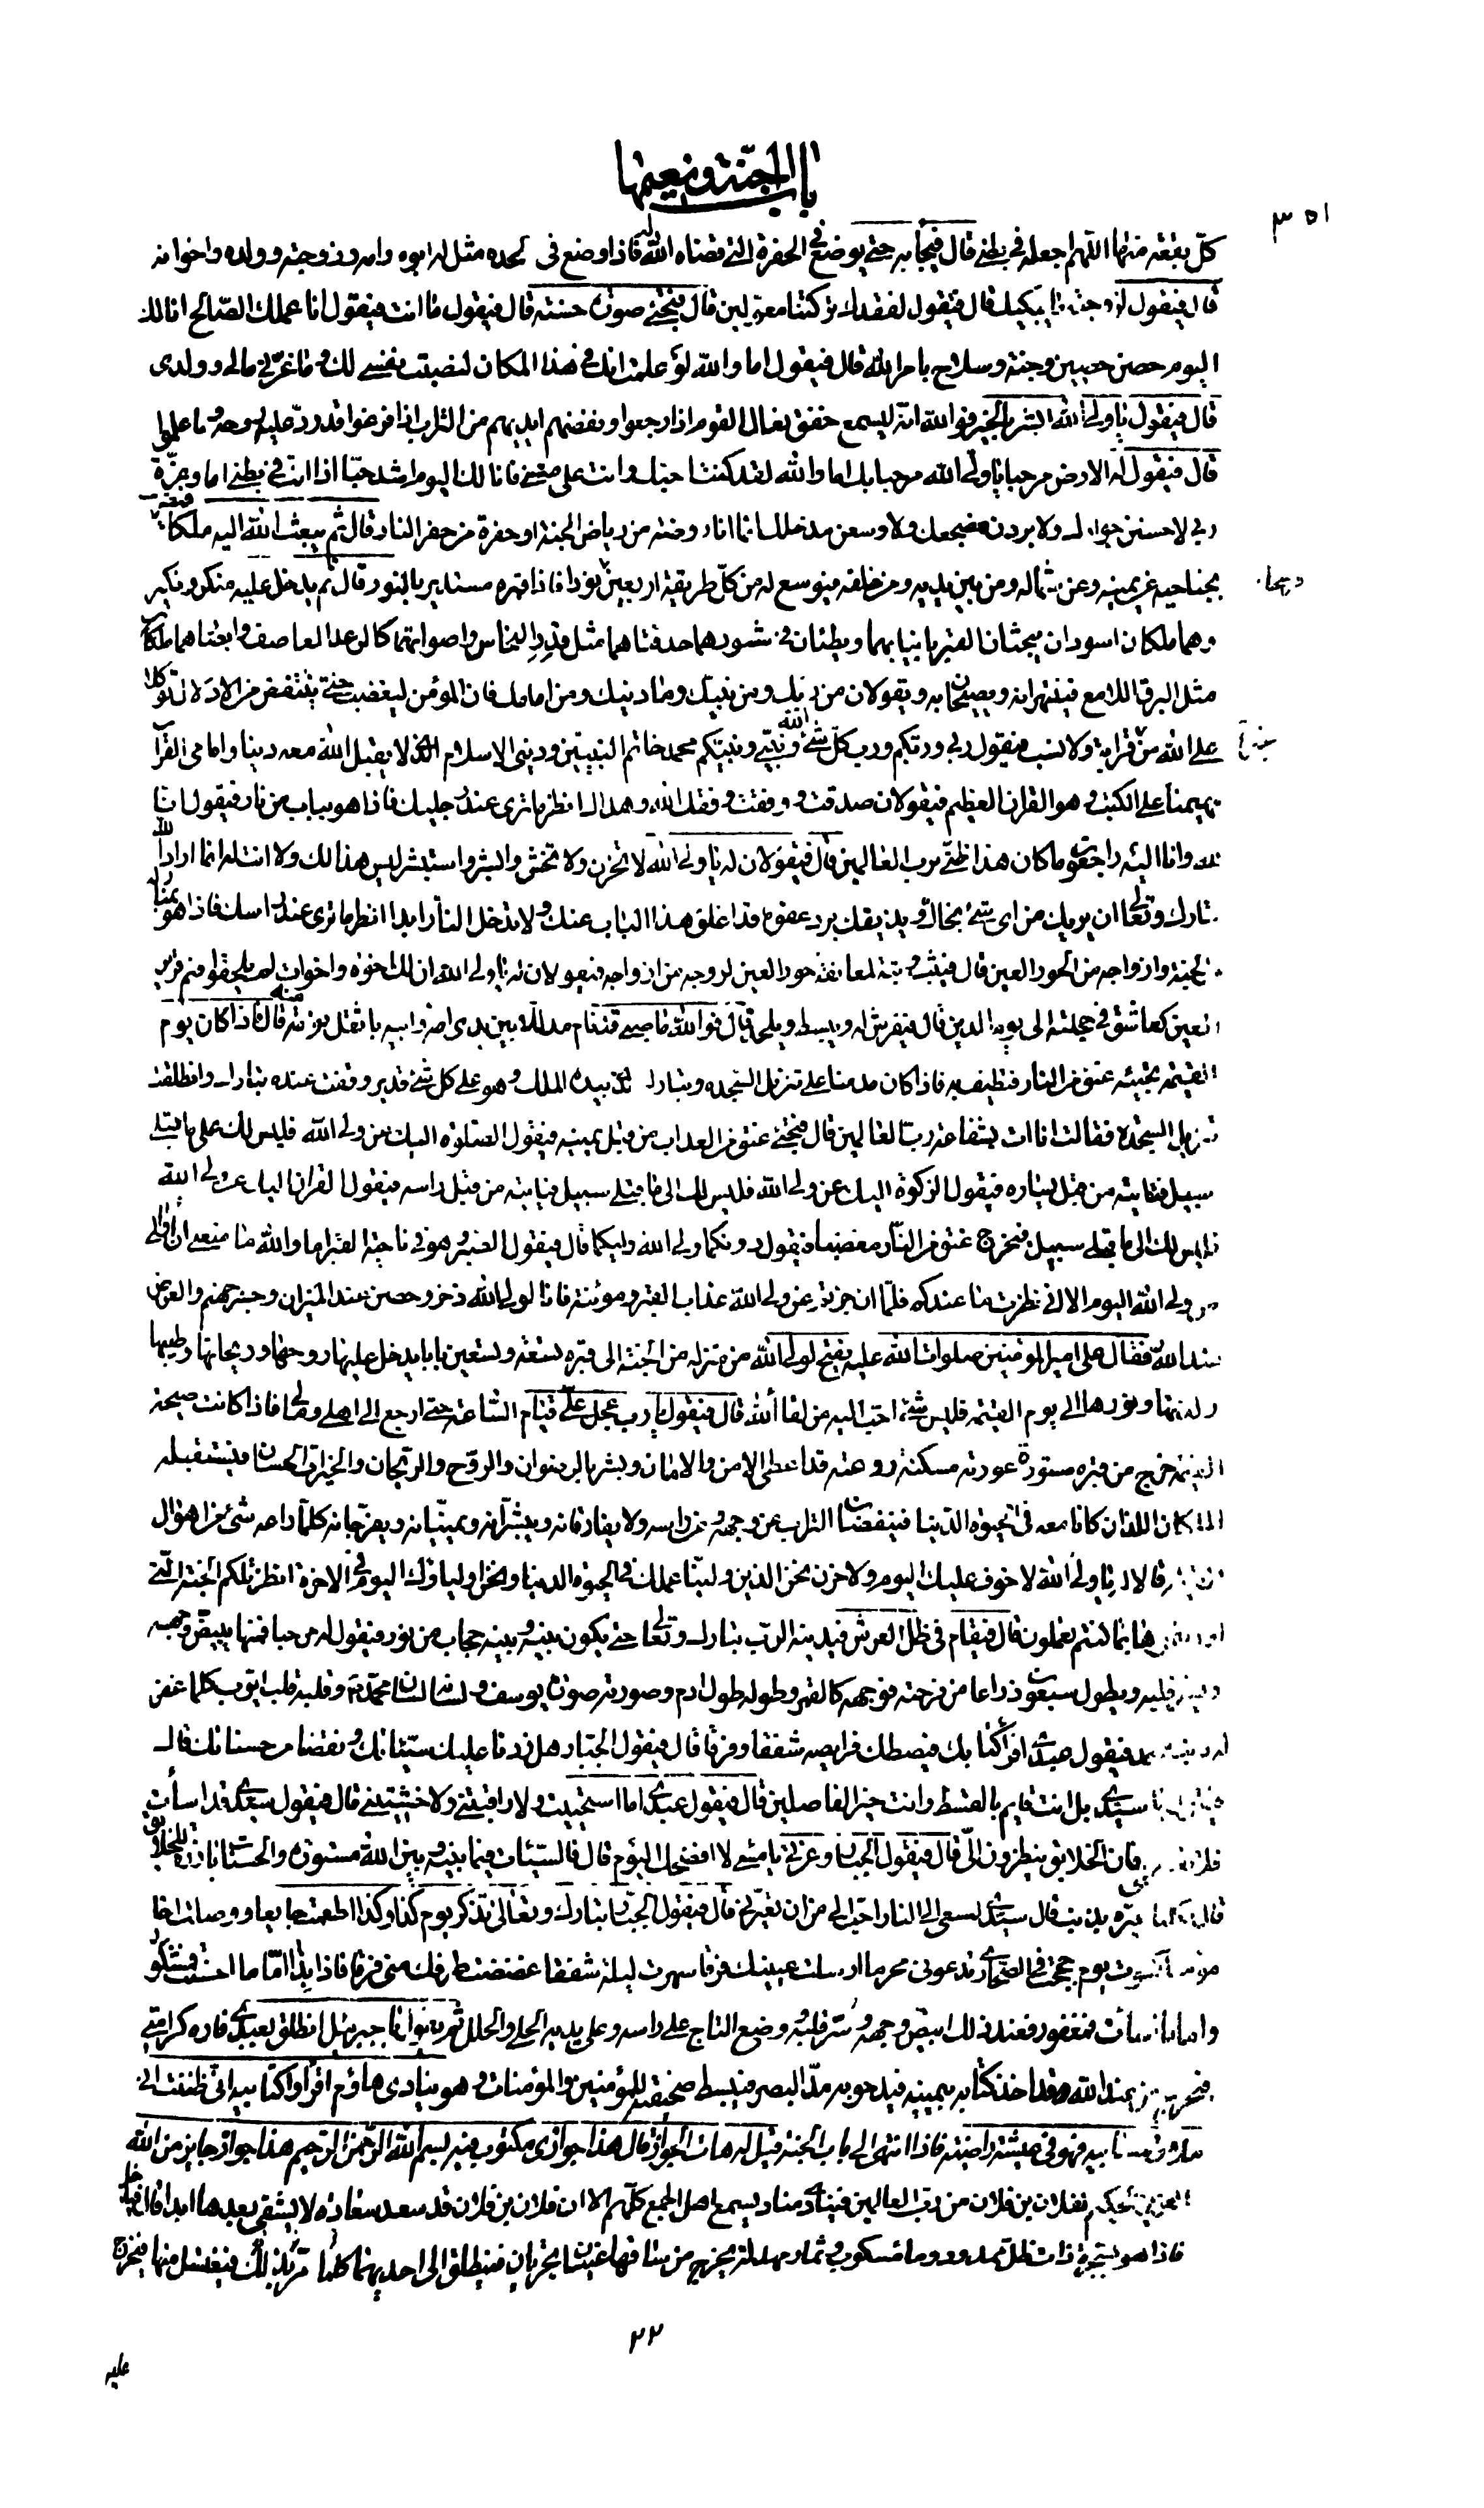 باب الجنة ونعيمها
٣٥١
كل بقعة منها اللهم اجعله في بطني قال فيجاء به حتى يوضع في الحفرة التي قضاه الله له فاذا وضع في لحده مثل له ابوه وامه وزوجته وولده واخوانه
قال فيقول لزوجته ما يبكيك قال فتقول لفقدك تركتنا معولين قال فتجئ صورة حسنة قال فيقول ما انت فيقول انا عملك الصالح انا لك
اليوم حصن حصين وجنة وسلاح بامر الله قال فيقول اما والله لو علمت انك في هذا المكان لنصبت نفسي لك وما غرني مالي وولدي
قال فيقول يا ولي الله ابشر بالخير فو الله انه ليسمع خفق نعال القوم اذا رجعوا ونفضهم ايديهم من التراب اذا فرغوا قد رد عليه روحه وما علموا
قال فيقول له الارض مرحبا يا ولي الله مرحبا بك اما والله لقد كنت احبك وانت على متني فانا لك اليوم اشد حبا اذا انت في بطني اما وعزة
ربي لاحسنن جوارك ولابردن مضجعك ولاوسعن مدخلك انما انا روضة من رياض الجنة او حفرة من حفر النار قال ثم يبعث الله اليه ملكا فيضرب
بجناحيه عن يمينه وعن شماله ومن بين يديه ومن خلفه فيوسع له من كل طريقة اربعين نورا فاذا قبره مستدير بالنور قال ثم يدخل عليه منكر ونكير
وهما ملكان اسودان يبحثان القبر بانيابهما ويطئان في شعورهما حدقتاهما مثل قدر النحاس واصواتهما كالرعد العاصف وابصارهما
مثل البرق اللامع فينتهرانه ويصيحان به ويقولان من ربك ومن نبيك وما دينك ومن امامك فان المؤمن ليغضب حتى ينتفض من الادلال توكلا
على الله من غير قرابة ولا نسب فيقول ربي وربكم ورب كل شئ الله ونبيي ونبيكم محمد خاتم النبيين وديني الاسلام الذي لا يقبل الله معه دينا وامامي القرآن
مهيمنا على الكتب وهو القرآن العظيم فيقولان صدقت ووفقت وفقك الله وهداك انظر ما ترى عند رجليك فاذا هو بباب من نار فيقول انا
لله وانا اليه راجعون ما كان هذا ظني برب العالمين قال فيقولان له يا ولي الله لا تحزن ولا تخش وابشر واستبشر ليس هذا لك ولا انت له انما اراد الله
تبارك وتعالى ان يريك من اي شئ نجاك ويذيقك برد عفوه قد اغلق هذا الباب عنك ولا تدخل النار ابدا انظر ما ترى عند راسك فاذا هو بمنازله
من الجنة وازواجه من الحور العين قال فيثب وثبة لمعانقة حور العين لزوجه من ازواجه فيقولان له يا ولي الله ان لك اخوة واخوات لم يلحقوا فنم قرير
العين كعاشق في حجلته الى يوم الدين قال فيفرش له ويبسط ويلحد قال فو الله ما صبي قد نام مدللا بين يدي امه وابيه باثقل نومة منه قال فاذا كان يوم
القيمة يجيئه عنق من النار فتطيف به فاذا كان مدمنا على تنزيل السجدة وتبارك الذي بيده الملك وهو على كل شئ قدير وقفت عنده تبارك وانطلقت
تنزيل السجدة فقالت انا آت بشفاعة رب العالمين قال فتجئ عنق من العذاب من قبل يمينه فيقول الصلوة اليك عن ولي الله فليس لك على ما قبلي
سبيل فتاتيه من قبل يساره فيقول الزكوة اليك عن ولي الله فليس لك الى ما قبلي سبيل فتاتيه من قبل راسه فيقول القرآن اليك عن ولي الله
فليس لك الى ما قبلي سبيل فيخرج عنق من النار مغضبا فيقول دونكما ولي الله وليكما قال فيقول الصبر وهو في ناحية القبر اما والله ما منعني ان الي
من ولي الله اليوم الا اني نظرت ما عندكم فلما ان جزتم عن ولي الله عذاب القبر ومؤنته فانا لولي الله ذخر وحصن عند الميزان وجسر جهنم والعرض
عند الله فقال علي امير المؤمنين صلوات الله عليه يفتح لولي الله من منزله من الجنة الى قبره تسعة وتسعين بابا يدخل عليها روحها وريحانها وطيبها
ولذتها ونورها الى يوم القيمة فليس شئ احب اليه من لقاء الله قال فيقول يا رب عجل علي قيام الساعة حتى ارجع الى اهلي ومالي فاذا كانت صيحة
القيمة خرج من قبره مستورة عورته مسكنة روعته قد اعطى الامن والامان وبشر بالرضوان والروح والريحان والخيرات الحسان فيستقبله
الملكان اللذان كانا معه في الحيوة الدنيا فينفضان التراب عن وجهه وعن راسه ولا يفارقانه ويبشرانه ويمنيانه ويفرجانه كلما راعه شئ من اهوال
القيمة قالا له يا ولي الله لا خوف عليك اليوم ولا حزن نحن الذين ولينا عملك في الحيوة الدنيا ونحن اولياؤك اليوم في الاخرة انظر تلكم الجنة التي
اورثتموها بما كنتم تعملون قال فيقام في ظل العرش فيدنيه الرب تبارك وتعالى حتى يكون بينه وبينه حجاب من نور فيقول له مرحبا فمنها يبيض وجهه
ويسر قلبه ويطول سبعون ذراعا من فرحته فوجهه كالقمر وطوله طول ادم وصورته صورة يوسف ولسانه لسان محمد ص وقلبه قلب ايوب كلما غفر
له ذنب سجد فيقول عبدي اقرأ كتابك فيصطك فرايصه شفقا وفرقا قال فيقول الجبار هل زدنا عليك سيئاتك ونقصنا من حسناتك قال
فيقول يا سيدي بل انت قايم بالقسط وانت خير الفاصلين قال فيقول عبدي اما استحييت ولا راقبتني ولا خشيتني قال فيقول سيدي قد اسأت
فلا تفضحني فان الخلايق ينظرون الي قال فيقول الجبار وعزتي يا مسئ لا افضحك اليوم قال فالسيئات فيما بينه وبين الله مستورة والحسنات بارزة للخلايق
قال فكلما عيره بذنب قال سيدي لسعي الى النار احب الي من ان تعيرني قال فيقول الجبار تبارك وتعالى تذكر يوم كذا وكذا اطعمت جايعا ووصلت اخا
مؤمنا كسوت يوم حججت في الصحارى تدعوني محرما ارسلت عينيك فرقا سهرت ليلة شفقا غضضت طرفك مني فرقا فاذا بذا اما ما احسنت فمشكور
واما ما اسأت فمغفور فعند ذلك ابيض وجهه وسر قلبه ووضع التاج على راسه وعلى يديه الحلي والحلل ثم يقول يا جبرئيل انطلق بعبدي فاره كرامتي
فيخرج من عند الله قد اخذ كتابه بيمينه فيدحو به مد البصر فيبسط صحيفته للمؤمنين والمؤمنات وهو ينادي هاؤم اقرأوا كتابيه اني ظننت اني
ملاق حسابيه فهو في عيشة راضية فاذا انتهى الى باب الجنة قيل له هات الجواز قال هذا جوازي مكتوب فيه بسم الله الرحمن الرحيم هذا جواز جايز من الله
العزيز الحكيم لفلان بن فلان من رب العالمين فينادي مناد يسمع اهل الجمع كلهم الا ان فلان بن فلان قد سعد سعادة لا يشقى بعدها ابدا قال فيدخل
فاذا هو بشجرة ذات ظل ممدود وماء مسكوب وثمار مهدلة يخرج من ساقها عينان تجريان فينطلق الى احديهما كلما مر بذلك فيغتسل منها فيخرج
٢٢
عليه